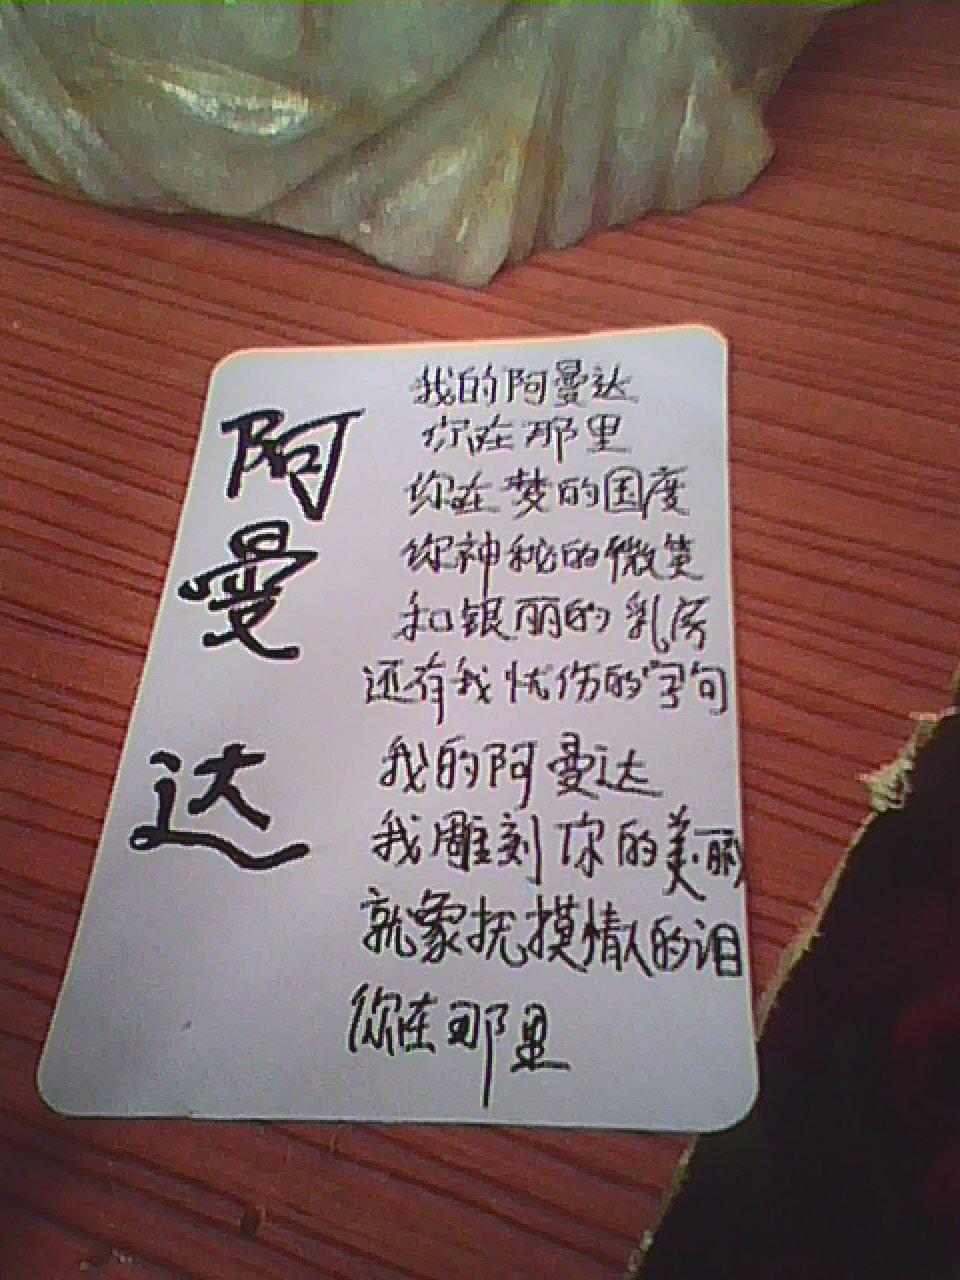 阿曼达
我的阿曼达
你在那里
你在梦的国度
你神秘的微笑
和银丽的乳房
还有我忧伤的字句
我的阿曼达
我雕刻你的美丽
就象抚摸情人的泪
你在那里